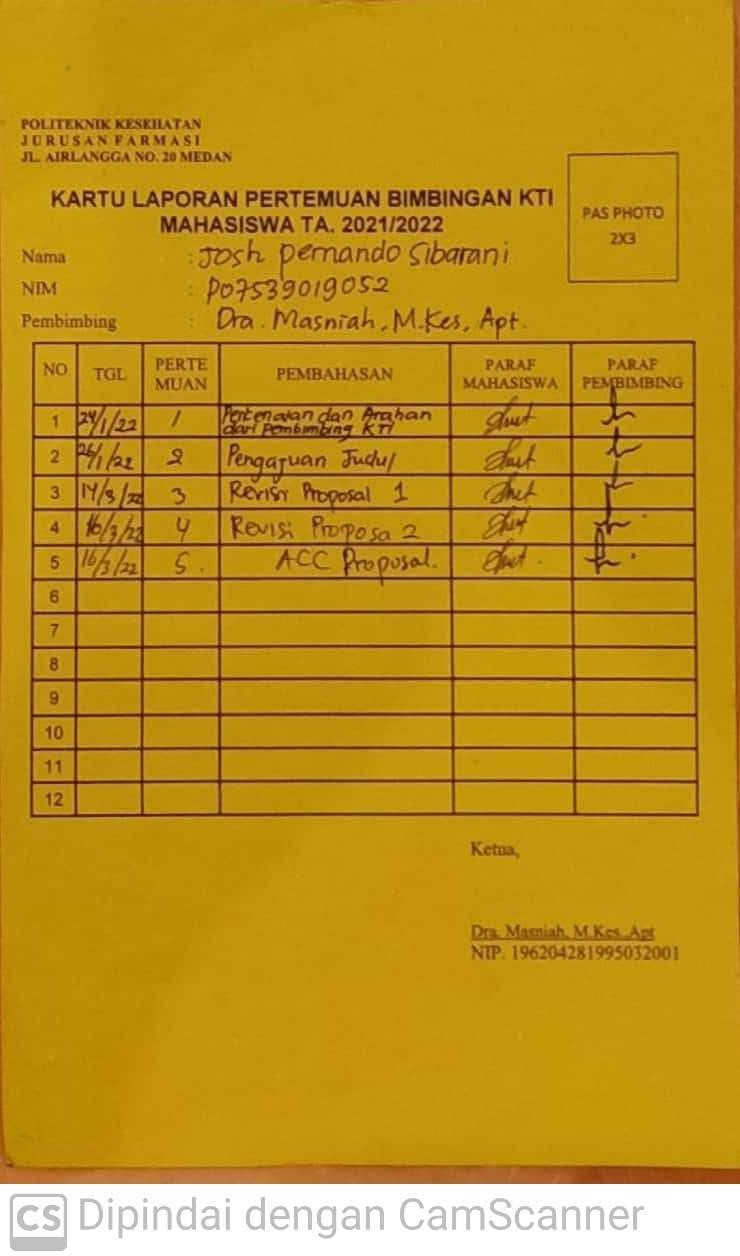 POLITEKNIK KESEHATAN
JURUSAN FARMASI
JL. AIRLANGGA NO. 20 MEDAN
KARTU LAPORAN PERTEMUAN BIMBINGAN KTI
MAHASISWA TA. 2021/2022
PAS PHOTO
2X3
Nama : Josh Pernando Sibarani
NIM : P07539019052
Pembimbing : Dra. Masniah, M.Kes, Apt.
NO TGL PERTE MUAN PEMBAHASAN PARAF MAHASISWA PARAF PEMBIMBING
1 24/1/22 1 Perkenalan dan Arahan
dari Pembimbing KTI
2 26/1/22 2 Pengajuan Judul
3 14/3/22 3 Revisi Proposal 1
4 16/3/22 4 Revisi Proposa 2
5 16/3/22 5. ACC Proposal.
6
7
8
9
10
11
12
Ketua,
Dra. Masniah, M.Kes.,Apt
NIP. 196204281995032001
CS Dipindai dengan CamScanner